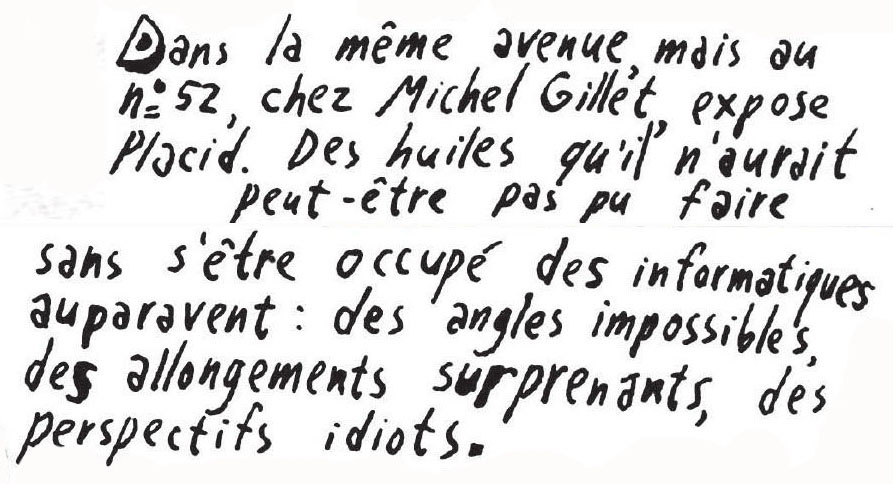 Dans la même avenue, mais au
n° 52, chez Michel Gillet, expose
Placid. Des huiles qu'il n'aurait
peut-être pas pu faire
sans s'être occupé des informatiques
auparavent : des angles impossibles,
des allongements surprenants, des
perspectifs idiots.